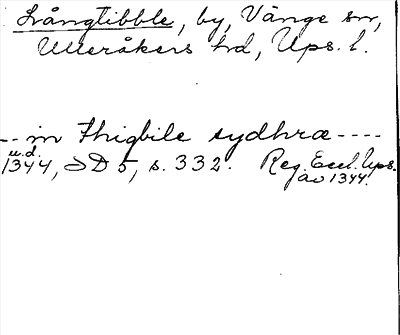 Långtibble, by, Vänge sn,
Ulleråkers hd, Ups. l.
-- in thigbile sydhræ ----
u.d.
1344, SD 5, s. 332. Reg. Eccl. Ups.
av 1344.